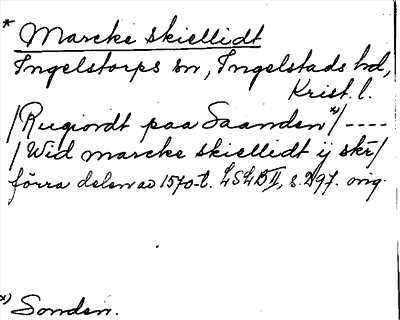 * Marcke skiellidt
Ingelstorps sn, Ingelstads hd,
Krist. l.
/Rugiordt paa Saanden x)/ ----
/Wid marcke skiellidt ij skr̄/
förra delen av 1570-t. LSLB II, s. 297. orig.
x) Sonden.